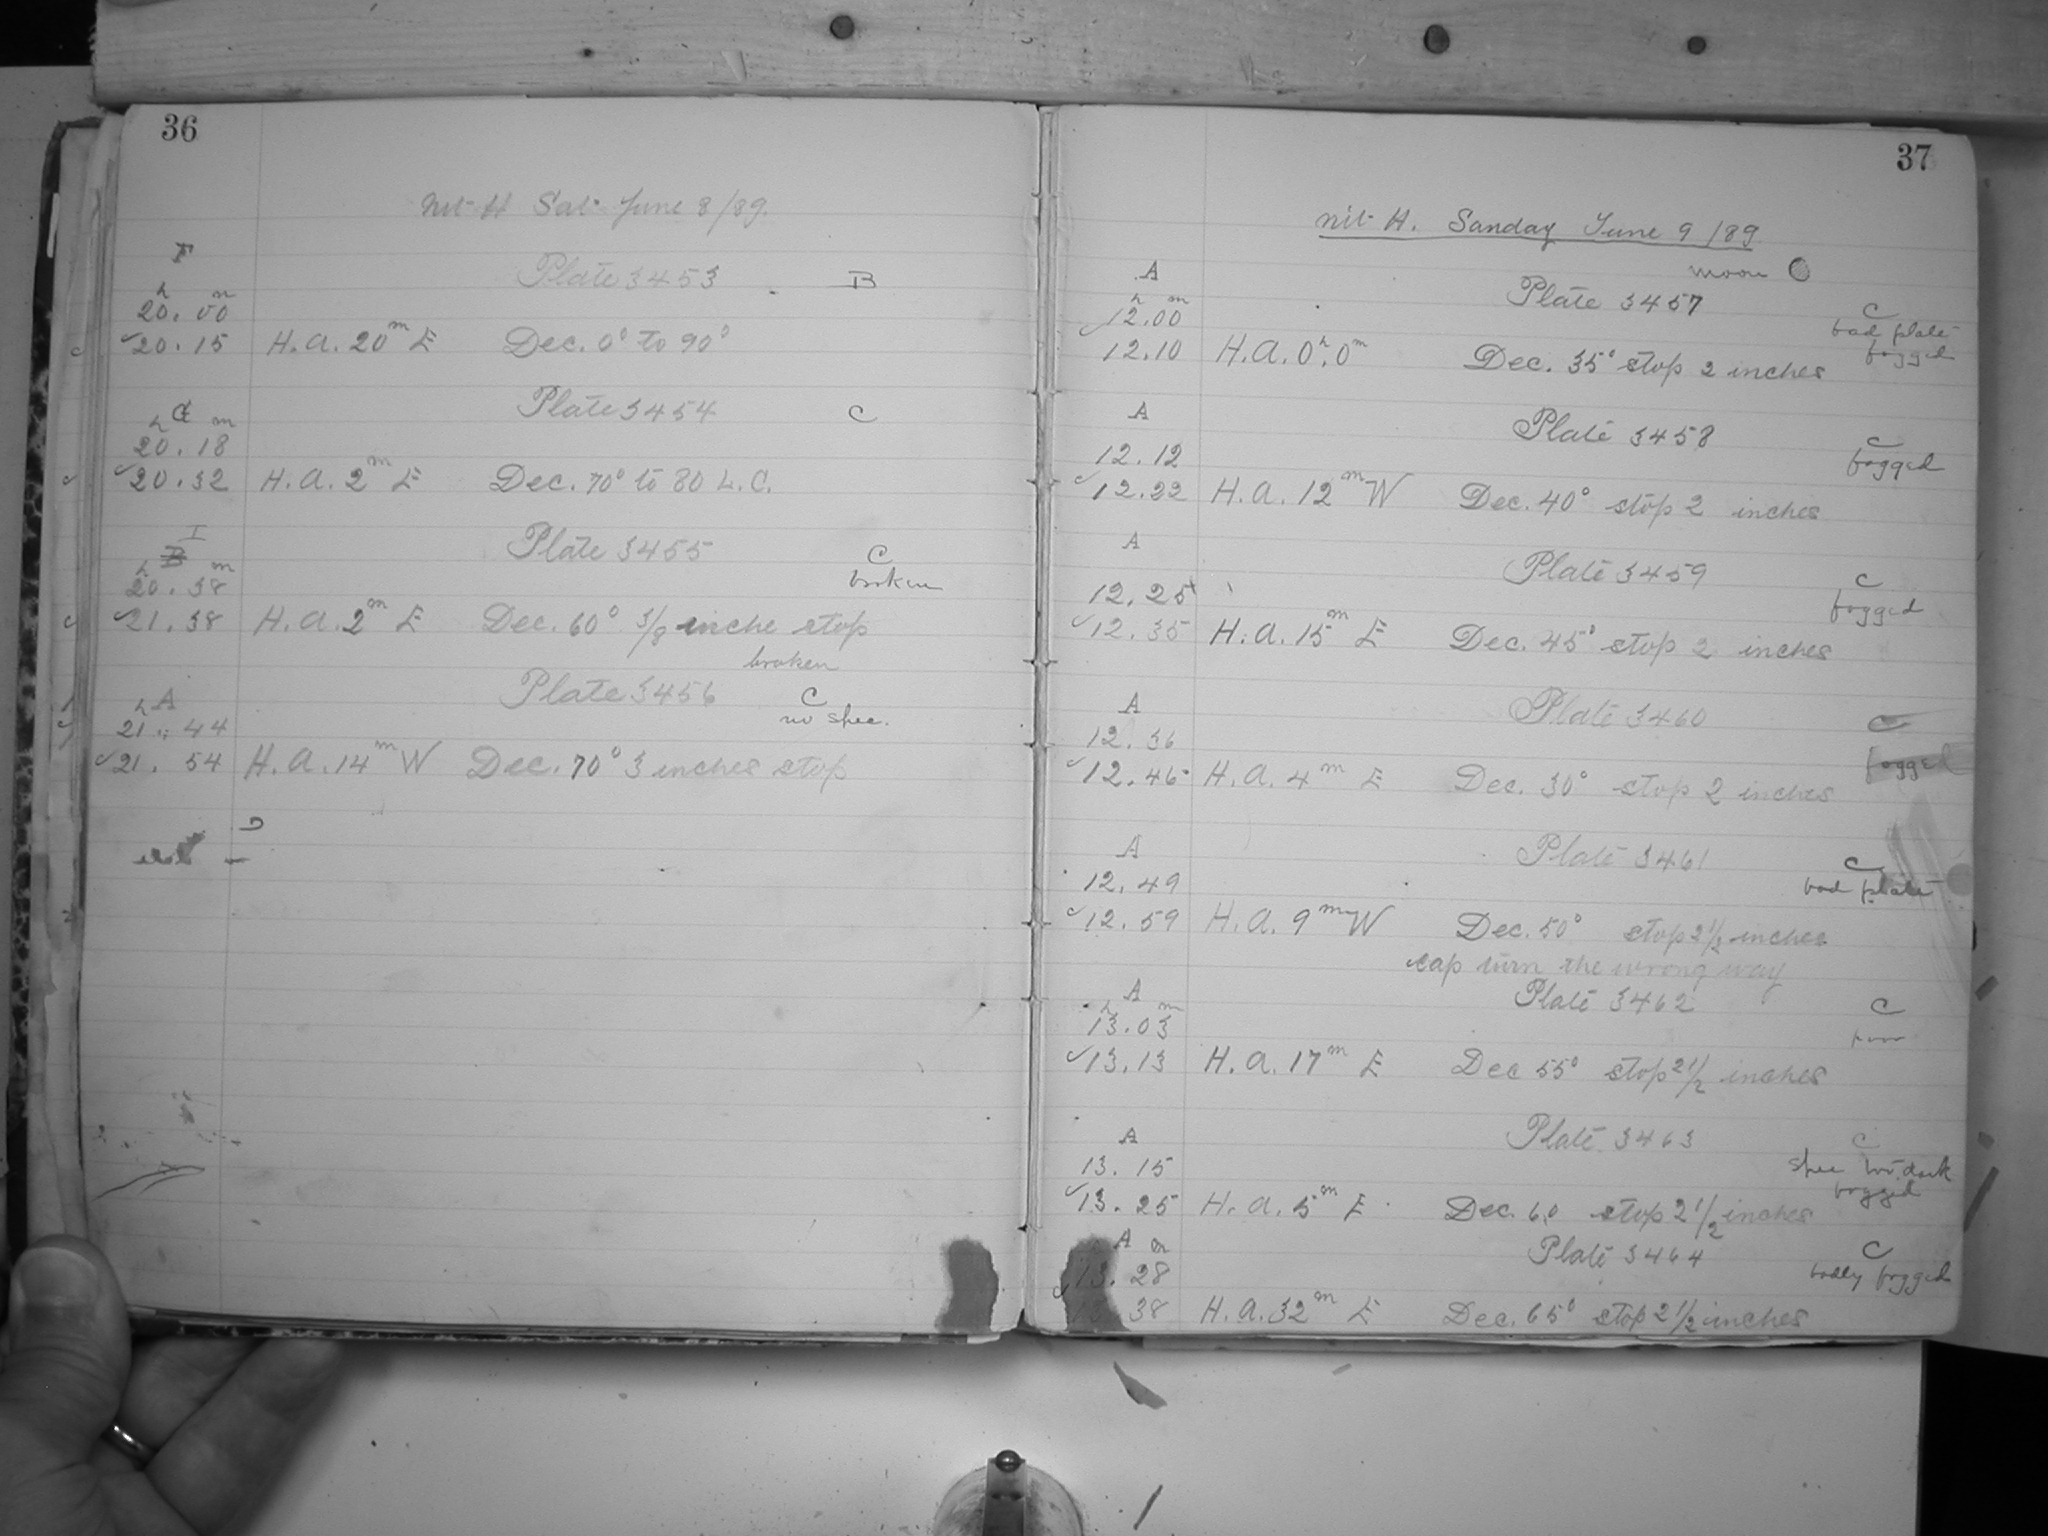 36
Nit H Sat June 8/89.
F
Plate 3453 B
h m
20.00
20.15 H.A. 20m E Dec. 0° to 90°
Plate 3454 C
h G m
20.18
20.32 H.A. 2m E Dec. 70° to 80 L.C.
I
Plate 3455 C
h B m broken
20.38
21.38 H.A. 2m E Dec. 60° 3/8 inche stop
broken
Plate 3456 C
h A no spec.
21.44
21.54 H.A. 14m W Dec. 70° 3 inches stop
37
nit H. Sanday June 9/89
moon
A
Plate 3457 C
h m
12.00 bad plate
fogged
12.10 H.A. 0h.0m Dec. 35° stop 2 inches
A
Plate 3458 C
12.12 fogged
12.22 H.A. 12m W Dec. 40° stop 2 inches
A
Plate 3459 C
12.25 fogged
12.35 H.A. 15m E Dec. 45° stop 2 inches
A
Plate 3460 C
12.36
fogged
12.46 H.A. 4m E Dec. 30° stop 2 inches
A
Plate 3461 C
12.49 bad plate
12.59 H.A. 9m W Dec. 50° stop 2 1/2 inches
cap turn the wrong way
A
Plate 3462 C
h m
13.03 poor
13.13 H.A. 17m E Dec 55° stop 2 1/2 inches
A
Plate 3463 C
13.15 spec too dark
fogged
13.25 H.A. 5m E Dec. 60 stop 2 1/2 inches
A m
Plate 3464 C
13.28 badly fogged
13.38 H.A. 32m E Dec. 65° stop 2 1/2 inches